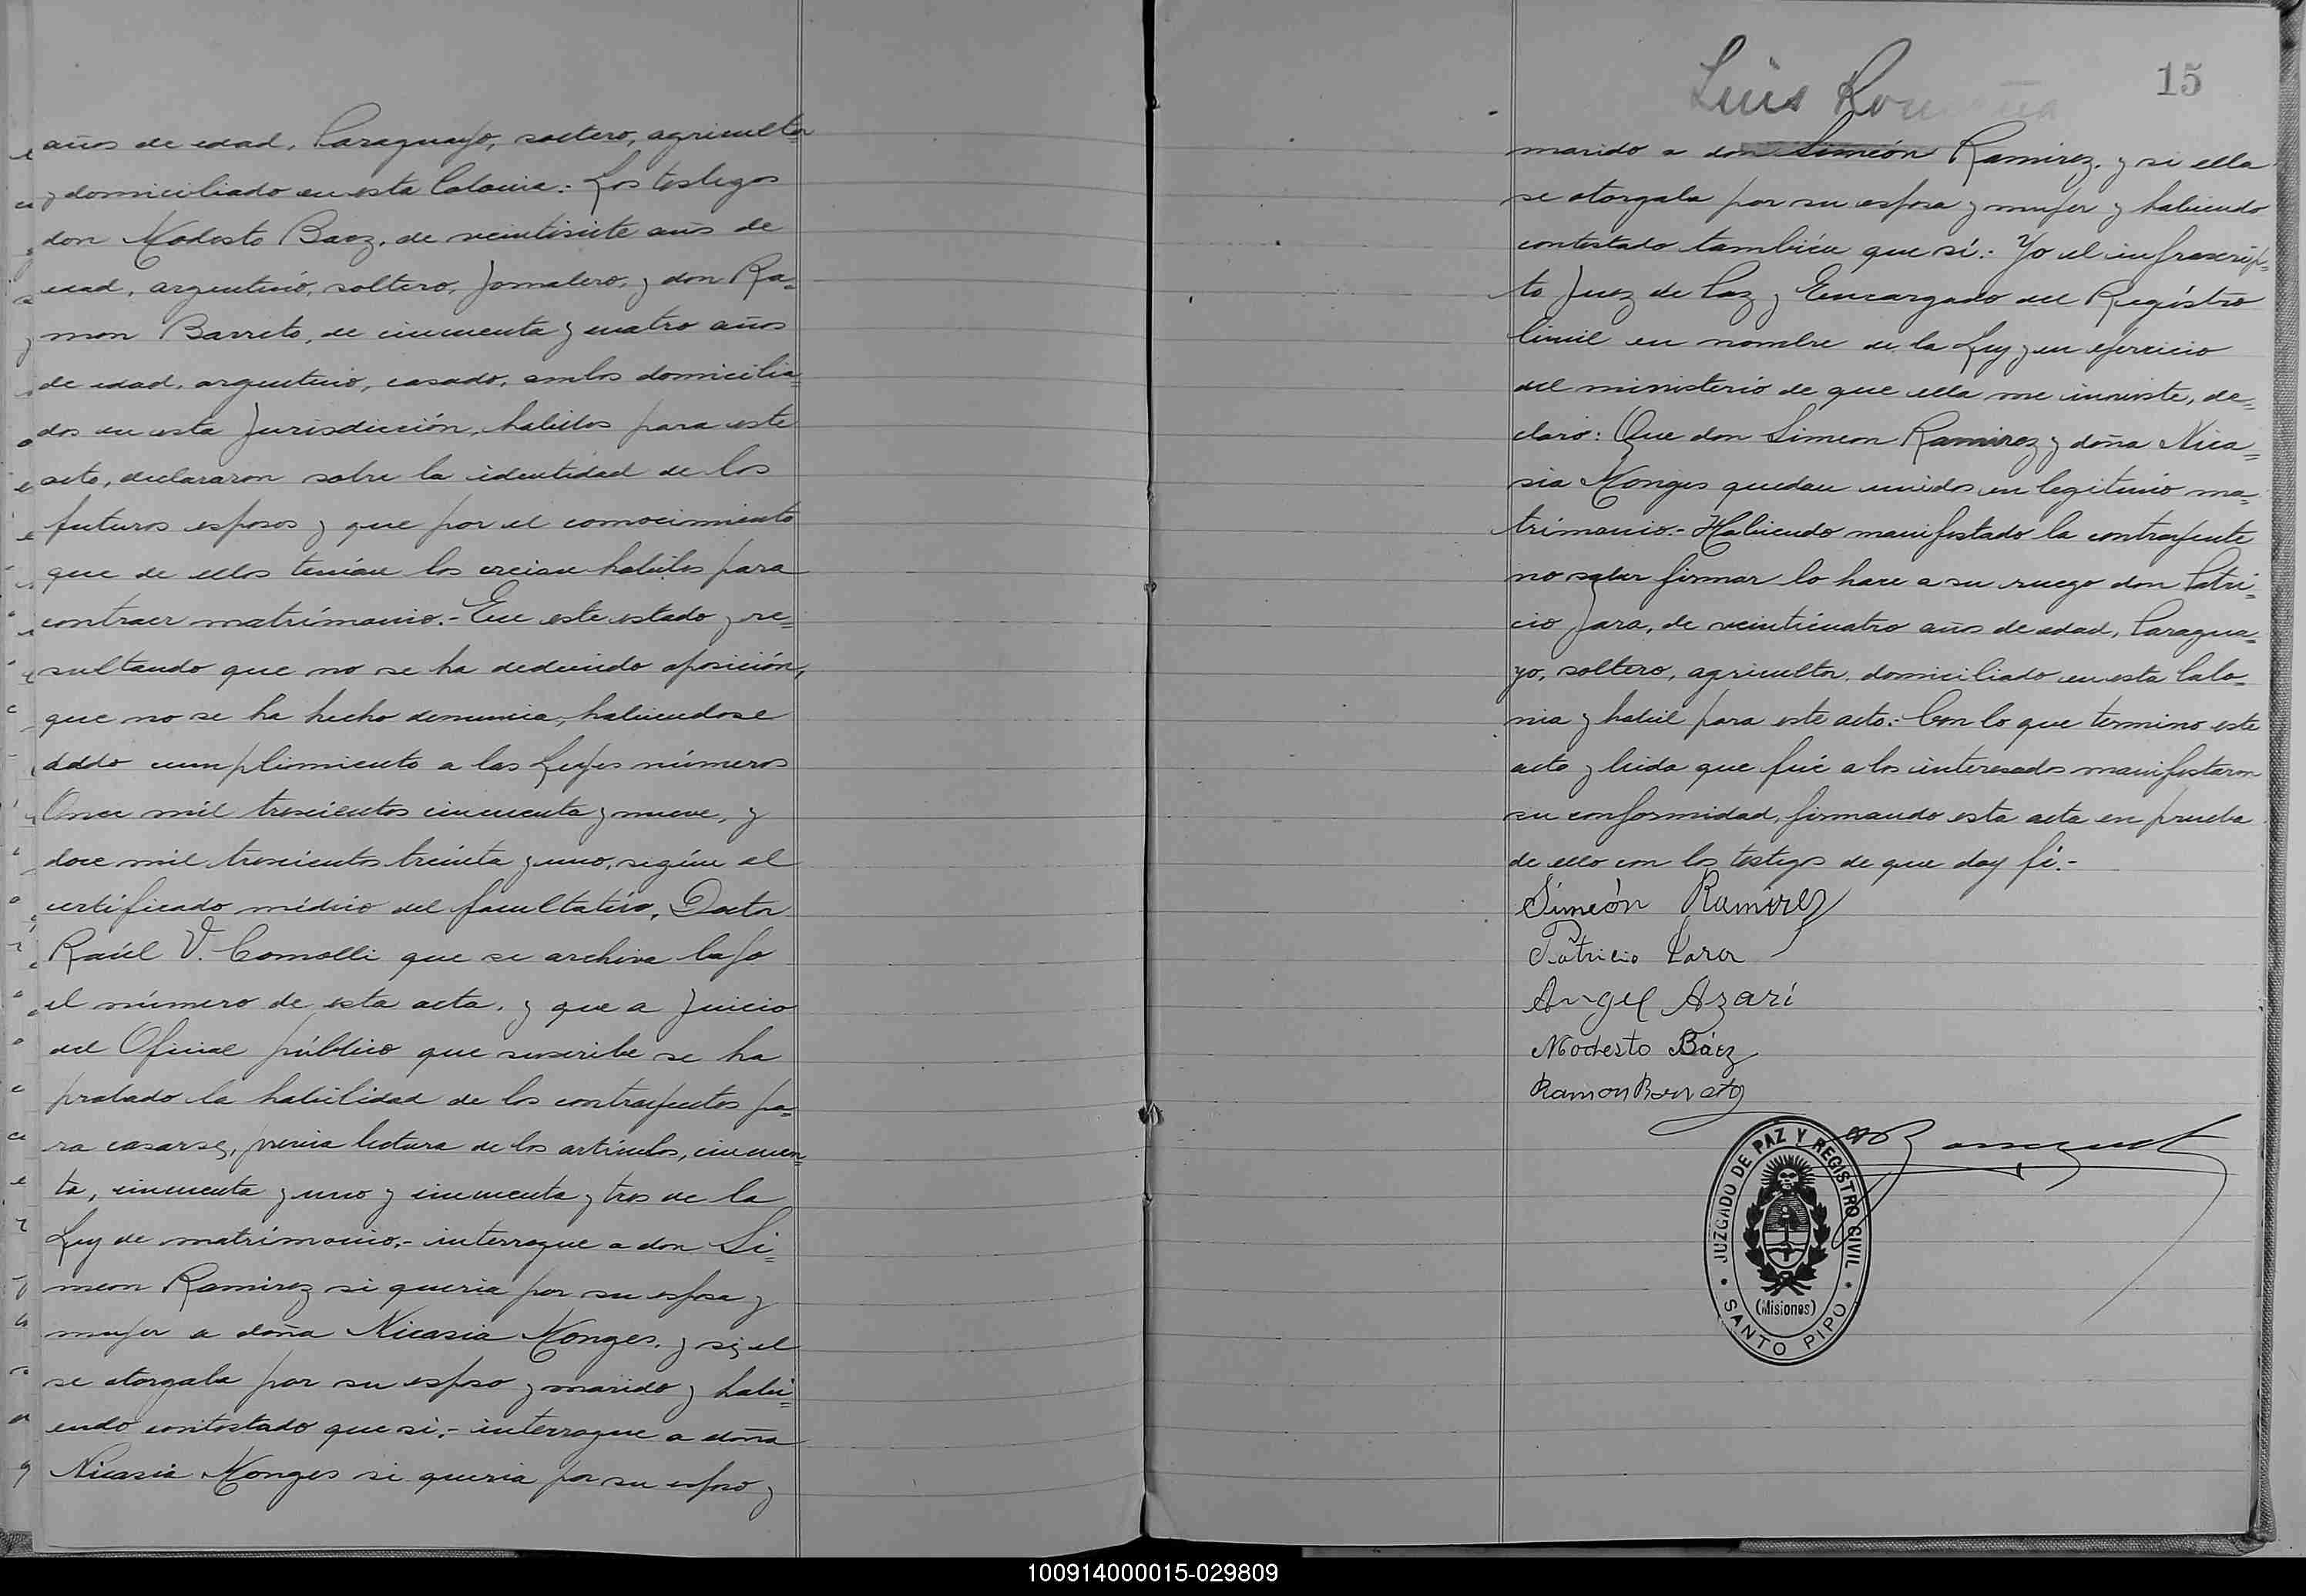 años de edad, Paraguayo, soltero, agricultor
y domiciliado en esta Colonia.: Los testigos
don Modesto Baez, de veintisiete años de
edad, argentino, soltero, Jornalero, y don Ra=
mon Barreto, de cincuenta y cuatro años
de edad, argentino, casado, ambos domicilia=
dos en esta Jurisdicción, habiles para este
acto, declararon sobre la identidad de los
futuros esposos y que por el conocimiento
que de ellos tenían los creian habiles para
contraer matrimonio.- En este estado y re=
sultando que no se ha deducido oposición,
que no se ha hecho denuncia, habiendose
dado cumplimiento a las Leyes números
Once mil trescientos cincuenta y nueve, y
doce mil trescientos treinta y uno, según el
certificado médico del facultativo, Doctor
Raúl V. Comolli que se archiva bajo
el número de esta acta, y que a Juicio
del Oficial público que suscribe se ha
probado la habilidad de los contrayentes pa=
ra casarse, previa lectura de los artículos, cincuen=
ta, cincuenta y uno y cincuenta y tres de la
Ley de matrimonio.- interrogue a don Si=
meon Ramirez si queria por su esposa y
mujer a doña Nicasia Monges, y si el
se otorgaba por su esposo y marido y habi=
endo contestado que si.- interrogue a doña
Nicasia Monges si queria por su esposo y
15
Luis
marido a don Simeón Ramirez, y si ella
se otorgaba por su esposa y mujer y habiendo
contestado también que sí.: Yo el infrascrip=
to Juez de Paz y Encargado del Registro
Civil en nombre de la Ley y en ejercicio
del ministerio de que ella me inviste, de=
claro: Que don Simeon Ramirez y doña Nica=
sia Monges quedan unidos en legitimo ma=
trimonio.- Habiendo manifestado la contrayente
no saber firmar lo hace a su ruego don Patri=
cio Jara, de veinticuatro años de edad, Paragua=
yo, soltero, agricultor, domiciliado en esta Colo=
nia y habil para este acto.- Con lo que termino este
acto y leida que fué a los interesados manifestaron
su conformidad, firmando esta acta en prueba
de ello con los testigos de que doy fé.-
Simeón Ramirez
Patricio Jara
Angel Azari
Modesto Báez
Ramon Barreto
JUZGADO DE PAZ Y REGISTRO CIVIL
(Misiones)
SANTO PIPO
100914000015-029809